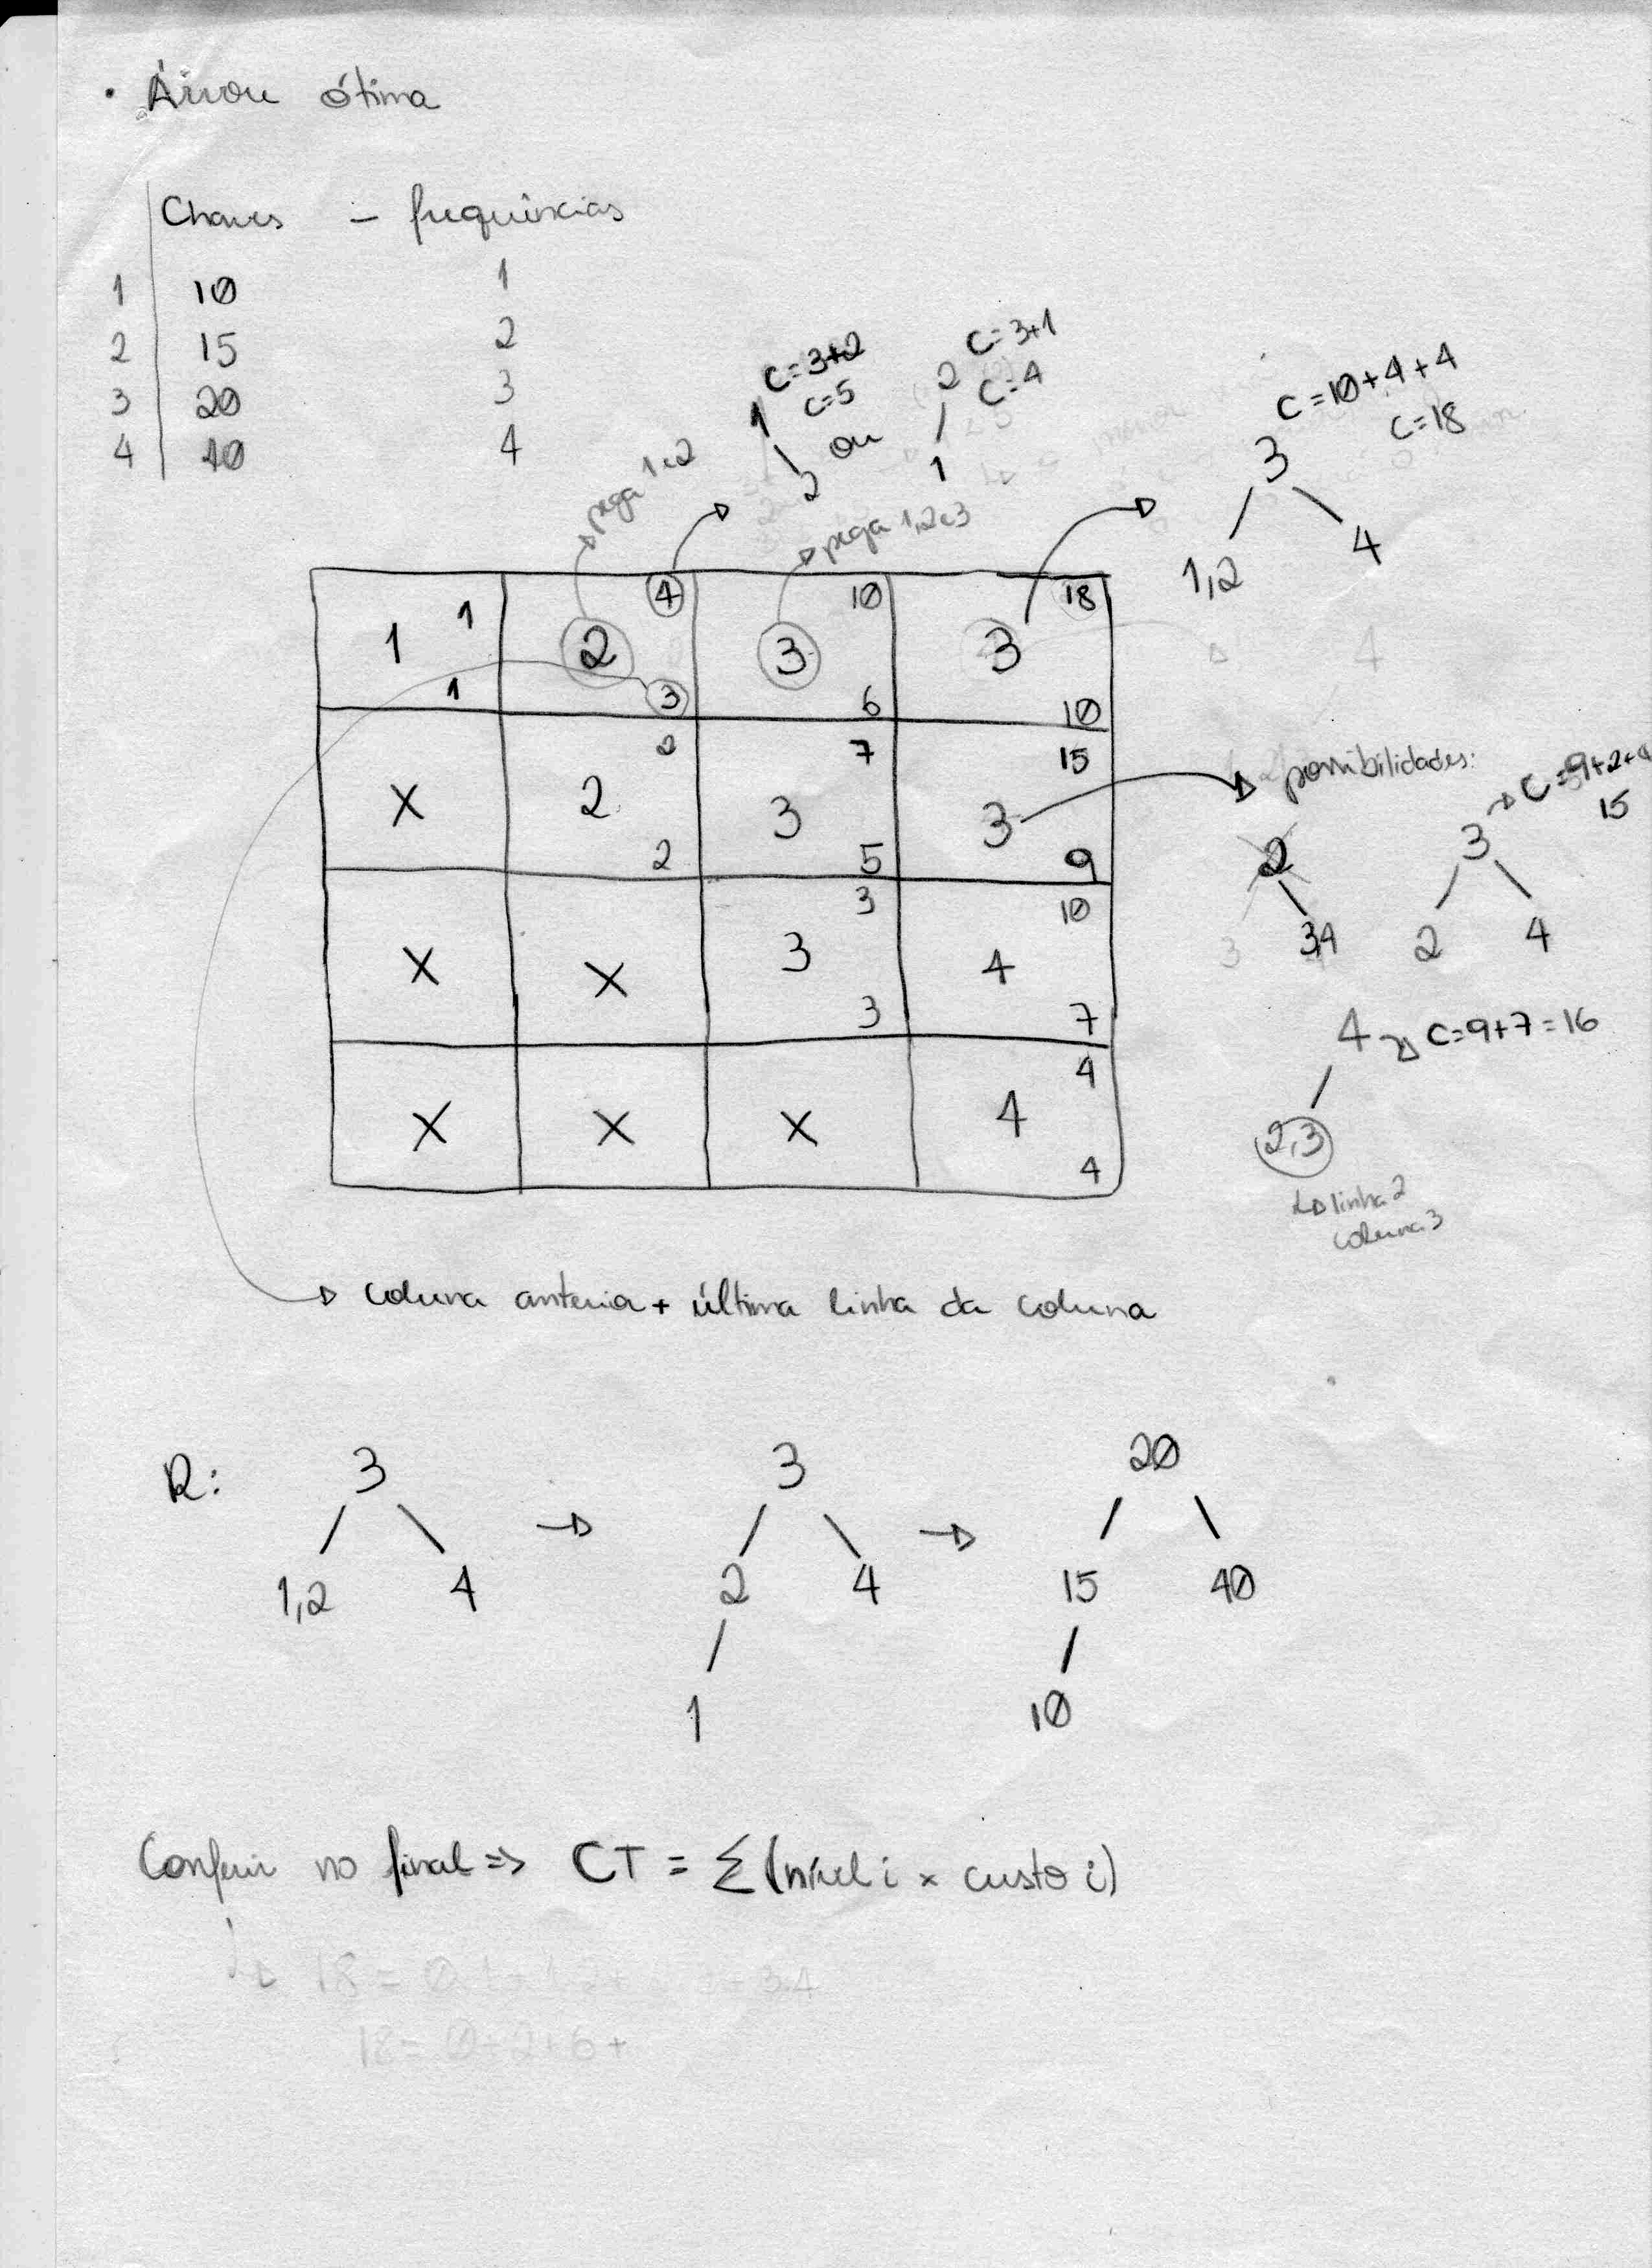 • Árvore ótima
Chaves - frequências
1 10 1
2 15 2
3 20 3
4 40 4
C=3+2
C=5
1
2
ou
C=3+1
C=4
2
1
C=10+4+4
C=18
3
1,2 4
pega 1 e 2
pega 1,2 e 3
1 1 1
2 4 3
3 10 6
3 18 10
X
2 2 2
3 7 5
3 15 9
X
X
3 3 3
4 10 7
X
X
X
4 4 4
possibilidades:
2
3,4
C=9+2+4
15
3
2 4
4 C=9+7=16
2,3
linha 2
coluna 3
coluna anterior + última linha da coluna
R: 3 3 20
1,2 4 2 4 15 40
1 10
Conferir no final => CT = Σ (nível i × custo i)